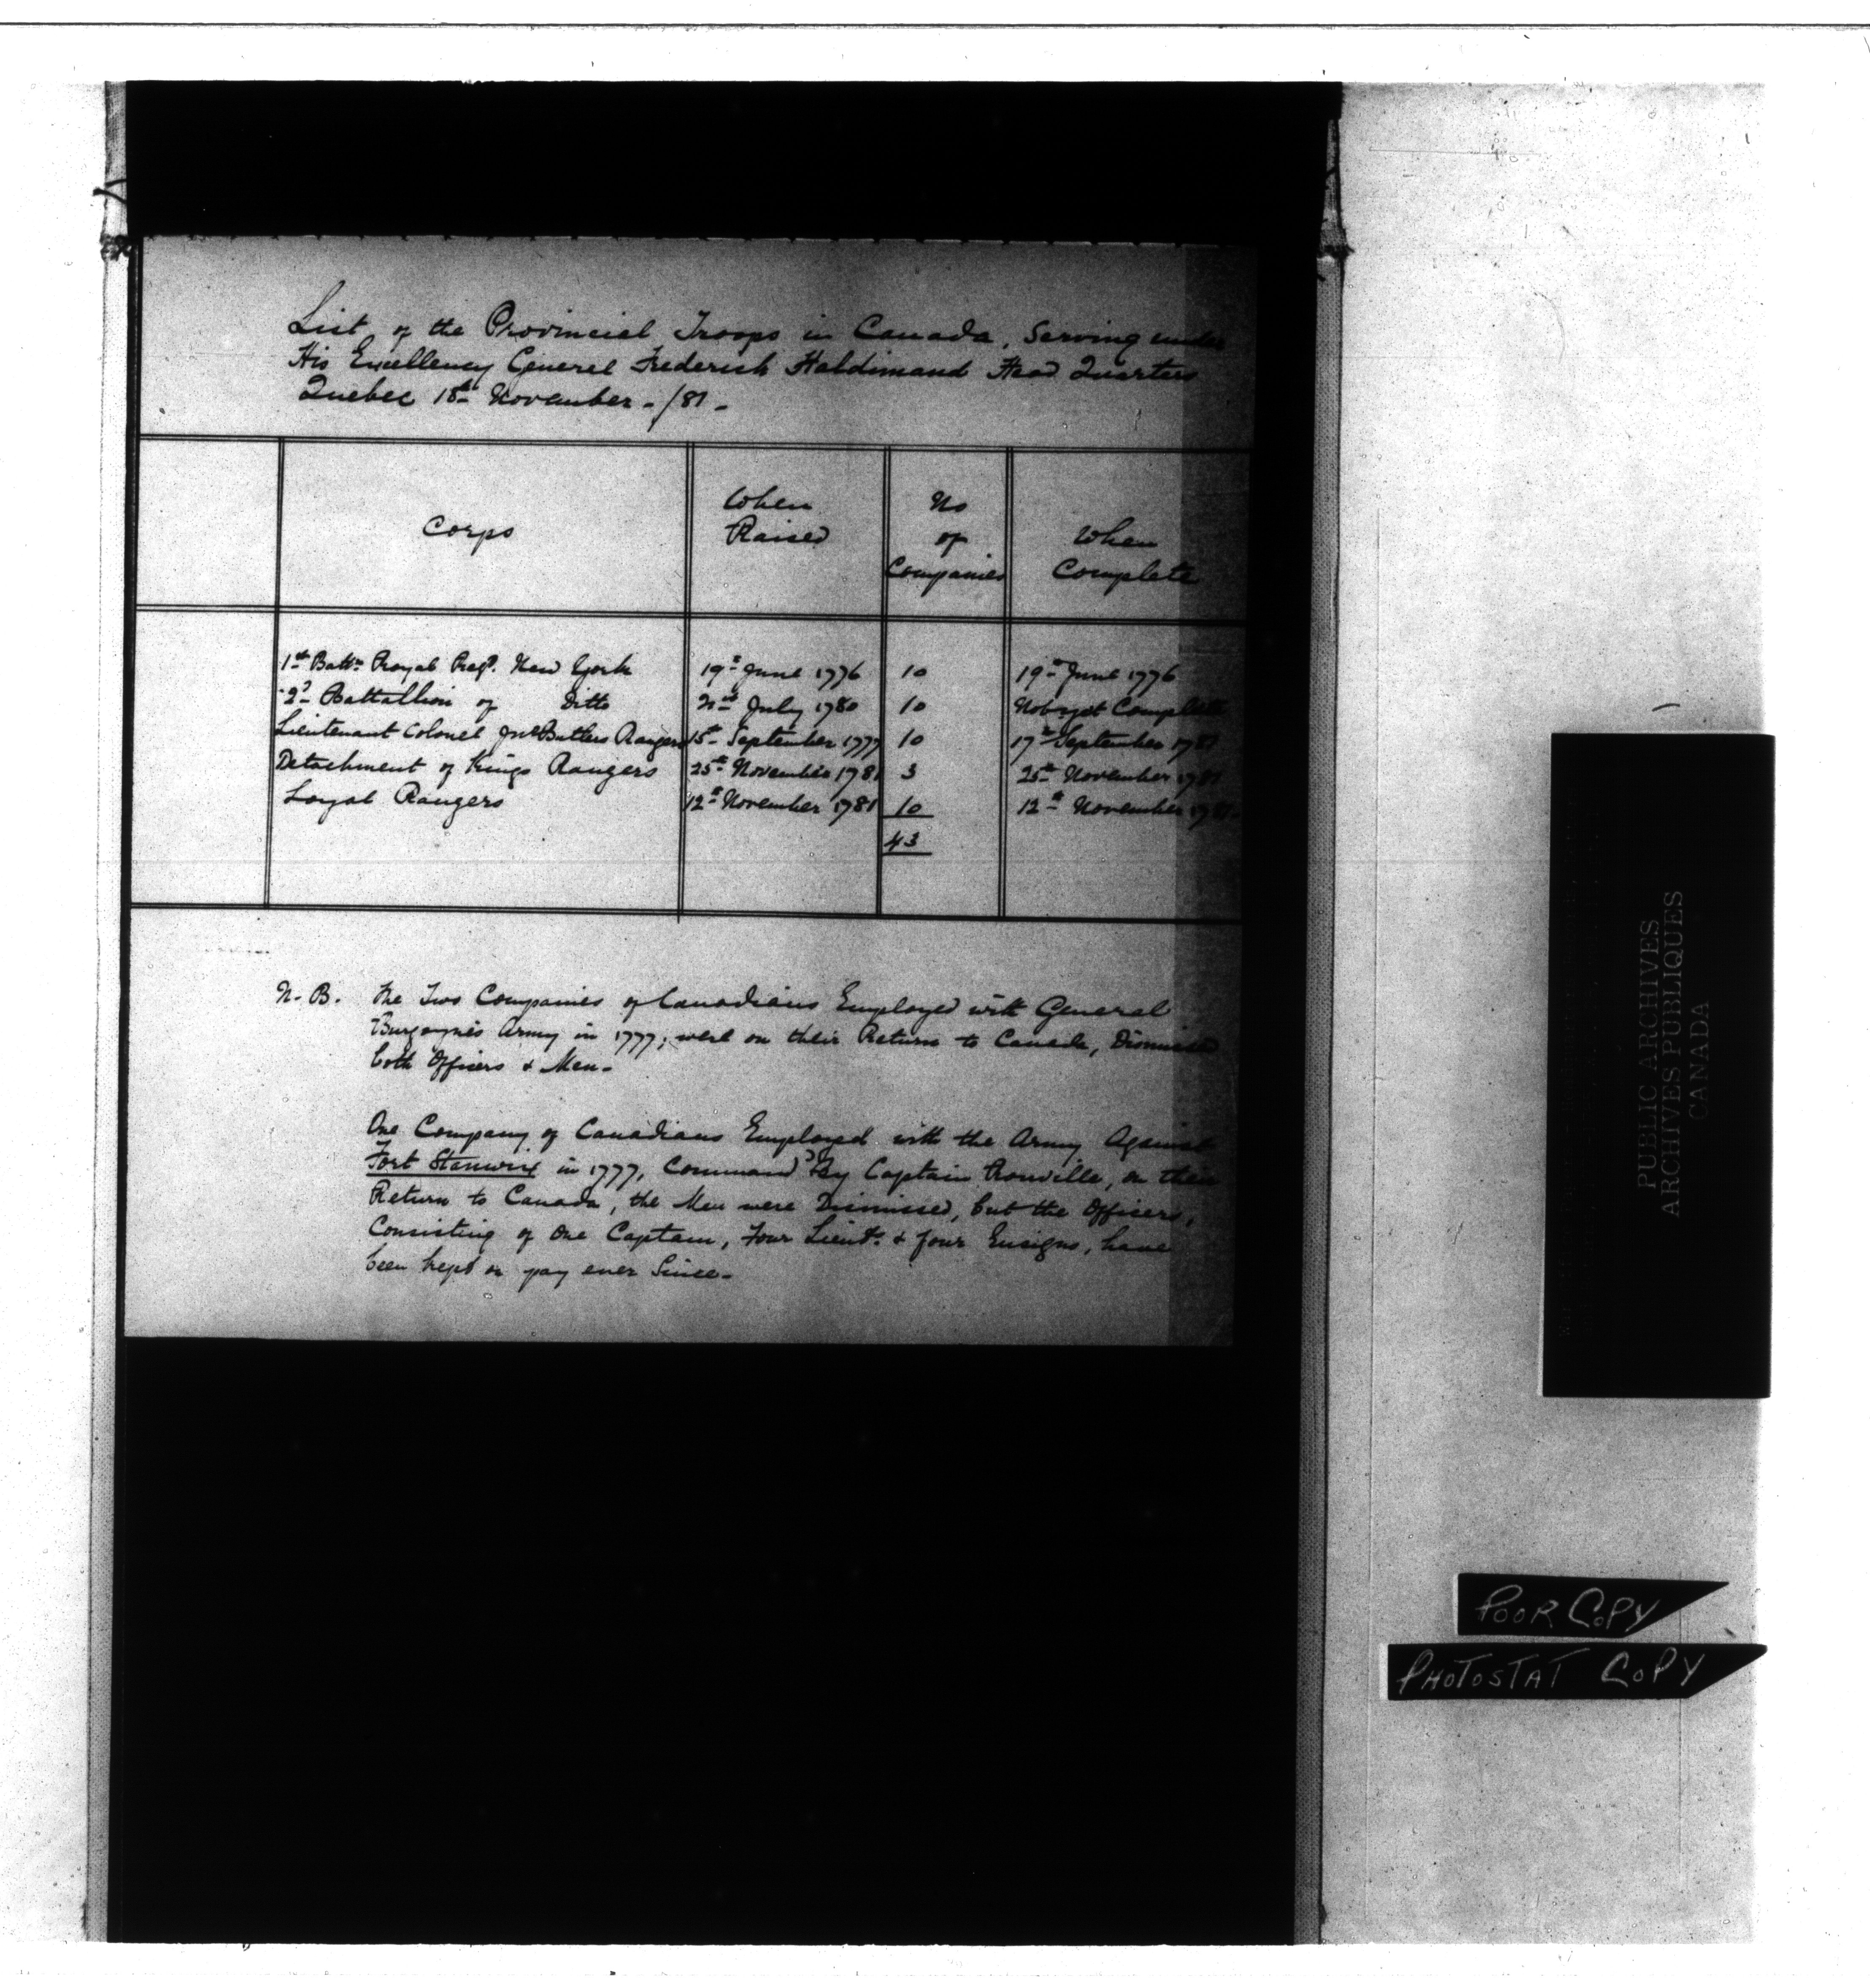 List of the Provincial Troops in Canada, Serving under
His Excellency General Frederick Haldimand Head Quarters
Quebec 18th November -/81-
Corps
When Raised
No of Companies
When Complete
1st Battn Royal Regt. New York 19th June 1776 10 19th June 1776
2d Battallion of Ditto July 1780 10 Not yet Complete
Lieutenant Colonel Jno Butlers Rangers 15th September 1777 10 17th September 1781
Detachment of Kings Rangers 25th November 1781 3 25th November 1781
Loyal Rangers 12th November 1781 10 12th November 1781-
43
N.B. The Two Companies of Canadians Employed with General
Burgoynes Army in 1777, were on their Return to Canada, Dismissed
both Officers & Men-
One Company of Canadians Employed with the Army Against
Fort Stanwix in 1777, Command'd By Captain Rouville, on their
Return to Canada, the Men were Dismissed, but the Officers,
Consisting of One Captain, Four Lieuts. & four Ensigns, have
been kept on pay ever Since-
PUBLIC ARCHIVES
ARCHIVES PUBLIQUES
CANADA
POOR COPY
PHOTOSTAT COPY